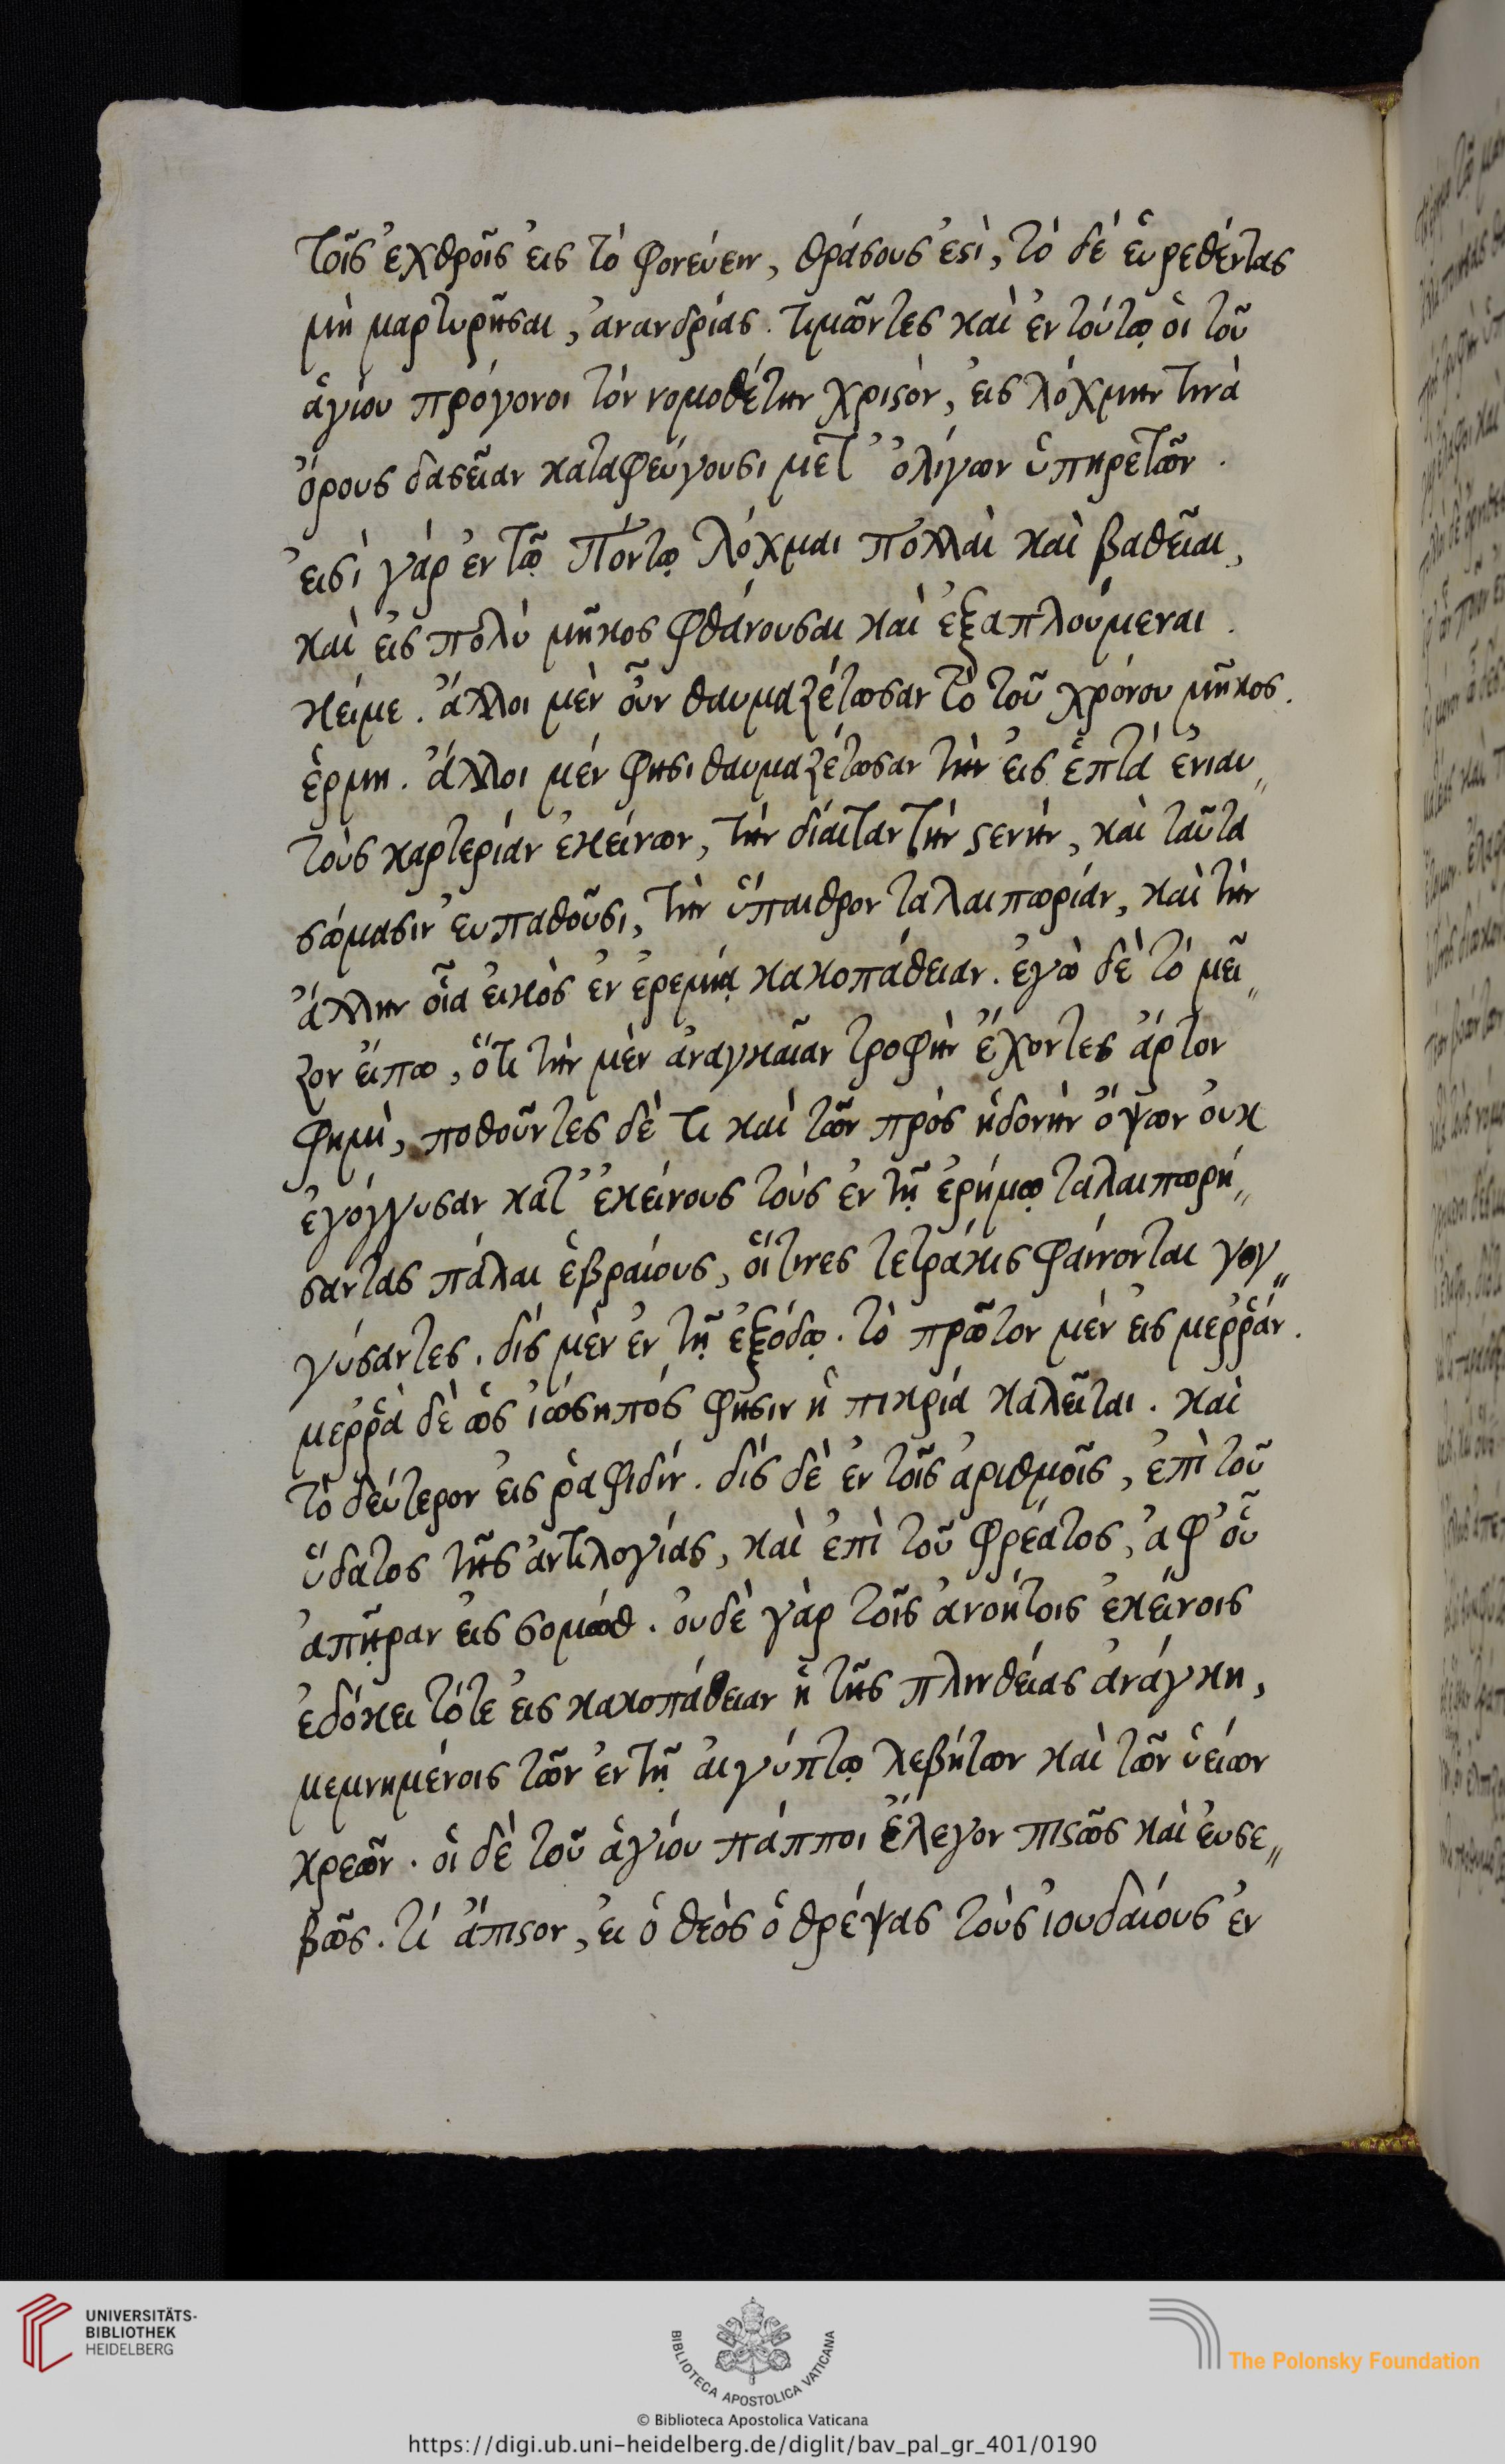 τοῖς ἐχθροῖς εἰς τὸ φονεύειν, θράσους ἐστὶ, τὸ δὲ εὑρεθέντας
μὴ μαρτυρῆσαι, ἀνανδρίας. τιμῶντες καὶ ἐν τούτῳ οἱ τοῦ
ἁγίου πρόγονοι τὸν νομοθέτην χριστὸν, εἰς λόχμην τινὰ
ὄρους δασεῖαν καταφεύγουσι μετ' ὀλίγων ὑπηρετῶν.
εἰσὶ γὰρ ἐν τῷ Πόντῳ λόχμαι πολλαὶ καὶ βαθεῖαι,
καὶ εἰς πολὺ μῆκος φθάνουσαι καὶ ἐξαπλούμεναι.
κείμε. ἄλλοι μὲν οὖν θαυμαζέτωσαν τὸ τοῦ χρόνου μῆκος.
ἑρμη. ἄλλοι μέν φησι θαυμαζέτωσαν τὴν εἰς ἑπτὰ ἐνιαυ„
τοὺς καρτερίαν ἐκείνων, τὴν δίαιταν τὴν στενὴν, καὶ ταῦτα
σώμασιν εὐπαθοῦσι, τὴν ὕπαιθρον ταλαιπωρίαν, καὶ τὴν
ἄλλην οἷα εἰκὸς ἐν ἐρεμίᾳ κακοπάθειαν. ἐγὼ δὲ τὸ μεῖ„
ζον εἴπω, ὅτι τὴν μὲν ἀναγκαῖαν τροφὴν ἔχοντες ἄρτον
φημὶ, ποθοῦντες δὲ τι καὶ τῶν πρὸς ἡδονὴν ὄψων οὐκ
ἐγόγγυσαν κατ' ἐκείνους τοὺς ἐν τῇ ἐρήμῳ ταλαιπωρή„
σαντας πάλαι ἑβραίους, οἵτινες τετράκις φαίνονται γογ„
γύσαντες. δὶς μὲν ἐν τῇ ἐξόδῳ. τὸ πρῶτον μὲν εἰς μερῤάν.
μερῤὰ δὲ ὡς ἰώσηπός φησιν ἡ πικρία καλεῖται. καὶ
τὸ δεύτερον εἰς ῥαφιδίν. δὶς δὲ ἐν τοῖς ἀριθμοῖς, ἐπὶ τοῦ
ὕδατος τῆς ἀντιλογίας, καὶ ἐπὶ τοῦ φρέατος, ἀφ' οὗ
ἀπῇραν εἰς σομωθ. οὐδὲ γὰρ τοῖς ἀνοήτοις ἐκείνοις
ἐδόκει τότε εἰς κακοπάθειαν ἡ τῆς πλινθείας ἀνάγκη,
μεμνημένοις τῶν ἐν τῇ αἰγύπτῳ λεβήτων καὶ τῶν ὑείων
κρεῶν. οἱ δὲ τοῦ ἁγίου πάπποι ἔλεγον πιστῶς καὶ εὐσε„
βῶς. τί ἄπιστον, εἰ ὁ θεὸς ὁ θρέψας τοὺς ἰουδαίους ἐν
UNIVERSITÄTS-
BIBLIOTHEK
HEIDELBERG
BIBLIOTECA APOSTOLICA VATICANA
The Polonsky Foundation
© Biblioteca Apostolica Vaticana
https://digi.ub.uni-heidelberg.de/diglit/bav_pal_gr_401/0190